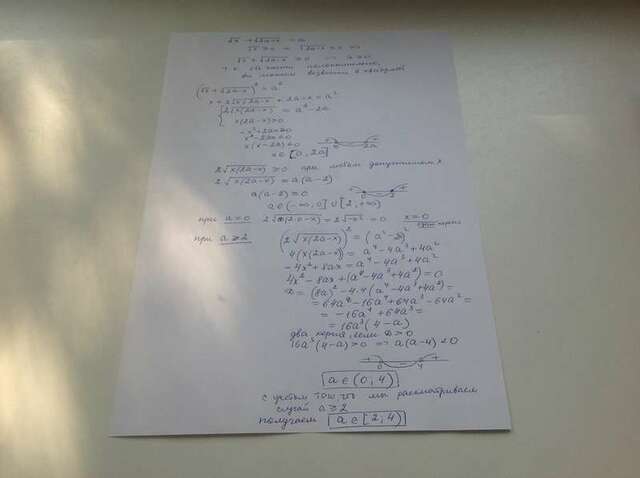 √x + √2a-x = a
√x ≥ 0 и √2a-x ≥ 0
√x + √2a-x ≥ 0 => a ≥ 0
т.к. обе части положительные,
мы можем возвести в квадрат
(√x + √2a-x)² = a²
x + 2√x√2a-x + 2a-x = a²
2√x(2a-x) = a² - 2a
x(2a-x) ≥ 0
-x² + 2ax ≥ 0
x² - 2ax ≤ 0
x(x-2a) ≤ 0
+ - +
0 2a
x ∈ [0, 2a]
2√x(2a-x) ≥ 0 при любом допустимом x
2√x(2a-x) = a(a-2)
a(a-2) ≥ 0
+ - +
0 2
a ∈ (-∞, 0] ∪ [2, +∞)
при a = 0 2√x(2·0-x) = 2√-x² = 0 x = 0
один корень
при a ≥ 2 (2√x(2a-x))² = (a² - 2a)²
4(x(2a-x)) = a⁴ - 4a³ + 4a²
-4x² + 8ax = a⁴ - 4a³ + 4a²
4x² - 8ax + (a⁴ - 4a³ + 4a²) = 0
D = (8a)² - 4·4(a⁴ - 4a³ + 4a²) =
= 64a² - 16a⁴ + 64a³ - 64a² =
= -16a⁴ + 64a³ =
= 16a³(4-a)
два корня, если D > 0
16a³(4-a) > 0 => a(a-4) < 0
+ - +
0 4
a ∈ (0; 4)
с учётом того, что мы рассматриваем
случай a ≥ 2
получаем a ∈ [2; 4)